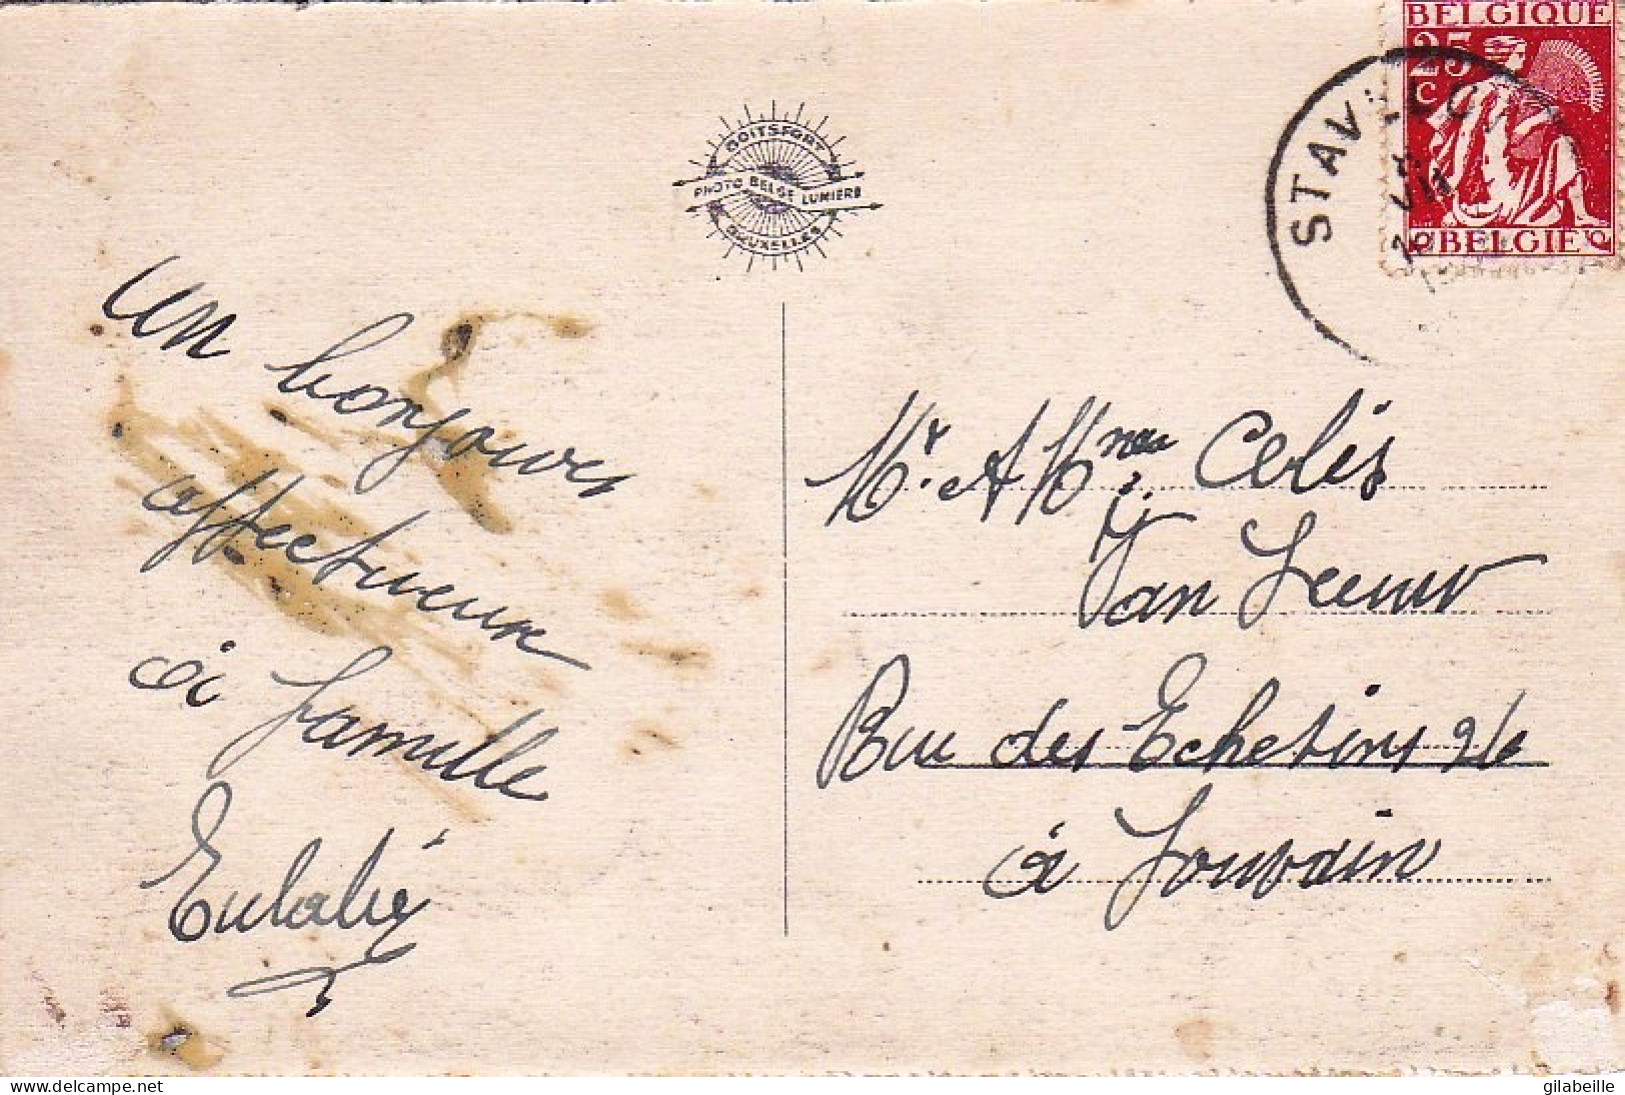 BELGIQUE
25
C
BELGIE
STAV
BOITSFORT
PHOTO BELGE LUMIERE
BRUXELLES
Un bonjours
affectueux
à famille
Eulalie
Mr. et Mme Celis
Van Leeuw
Rue des Echevins 26
à Louvain
delcampe.net
gilabeille